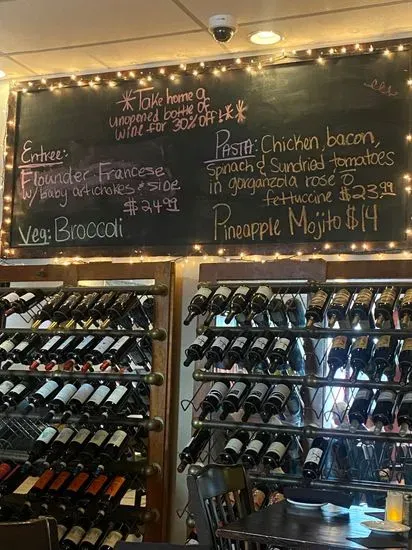 *Take home a
unopened bottle of
wine for 30% OFF!**
Entree:
Flounder Francese
w/ baby artichokes & side
$24.99
Veg: Broccoli
Pasta: Chicken, bacon,
spinach & sundried tomatoes
in gorganzola rosé
fettuccine $23.99
Pineapple Mojito $14